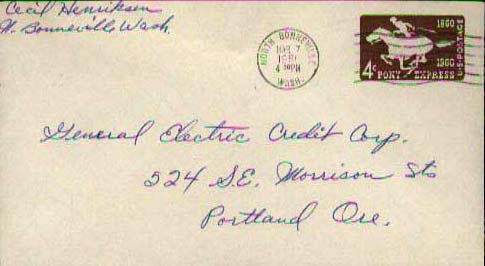 Cecil Henriksen
N. Bonneville Wash.
NORTH BONNEVILLE
MAR 7
4 PM
WASH.
1860
1960
4¢ PONY EXPRESS
U.S. POSTAGE
General Electric Credit Corp.
524 S.E. Morrison Sts
Portland Ore.